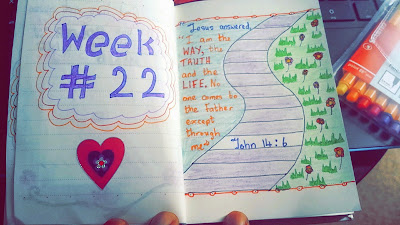 Week
# 22
"Jesus answered,
"I am the
WAY, the
TRUTH
and the
LIFE. No
one comes to
the Father
except
through
me."
~John 14:6